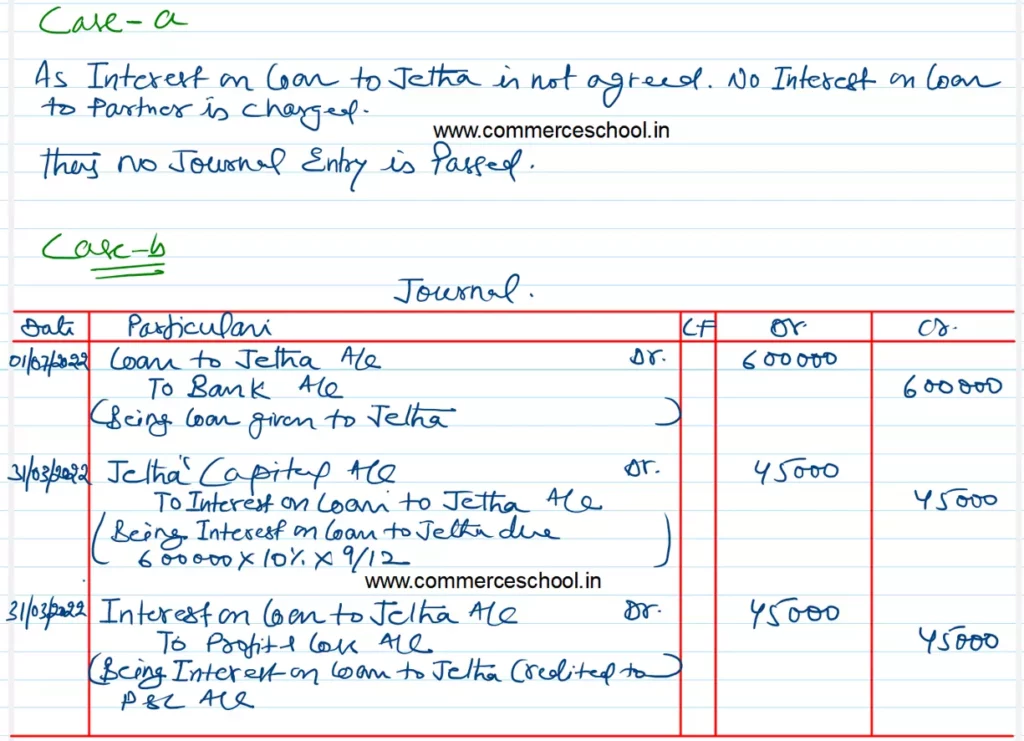 Case-a
As Interest on Loan to Jetha is not agreed. No Interest on Loan
to Partner is charged.
www.commerceschool.in
Thus no Journal Entry is Passed.
Case-b
Journal.
Date Particulars LF Dr. Cr.
01/07/2022 Loan to Jetha A/c Dr. 600000
To Bank A/c 600000
(Being loan given to Jetha)
31/03/2022 Jetha's Capital A/c Dr. 45000
To Interest on Loan to Jetha A/c 45000
(Being Interest on Loan to Jetha due
600000 X 10% X 9/12)
www.commerceschool.in
31/03/2022 Interest on Loan to Jetha A/c Dr. 45000
To Profit & Loss A/c 45000
(Being Interest on Loan to Jetha Credited to)
P&L A/c